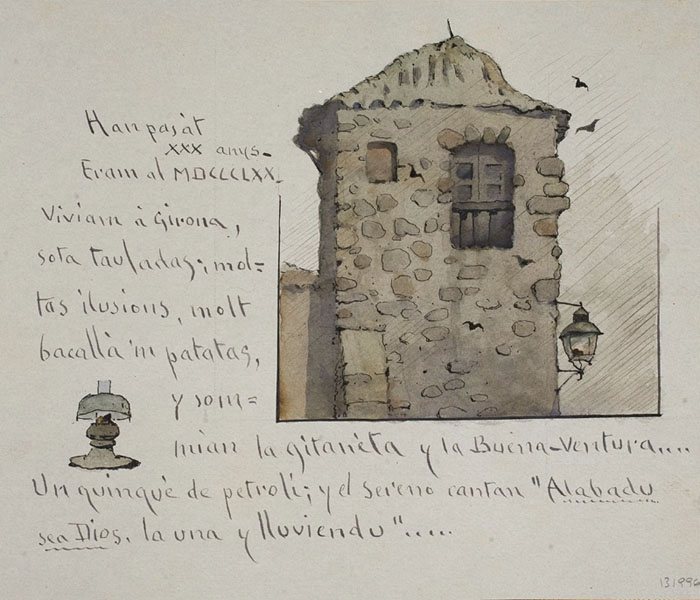 Han pasàt
XXX anys-
Eram al MDCCCLXX.
Viviam à Girona,
sota tauladas; mol=
tas ilusions, molt
bacallá 'm patatas,
y som=
mian la gitanèta y la Buena-Ventura....
Un quinqué de petroli; y el sereno cantan "Alabadu
sea Dios. la una y lluviendu".....
131996